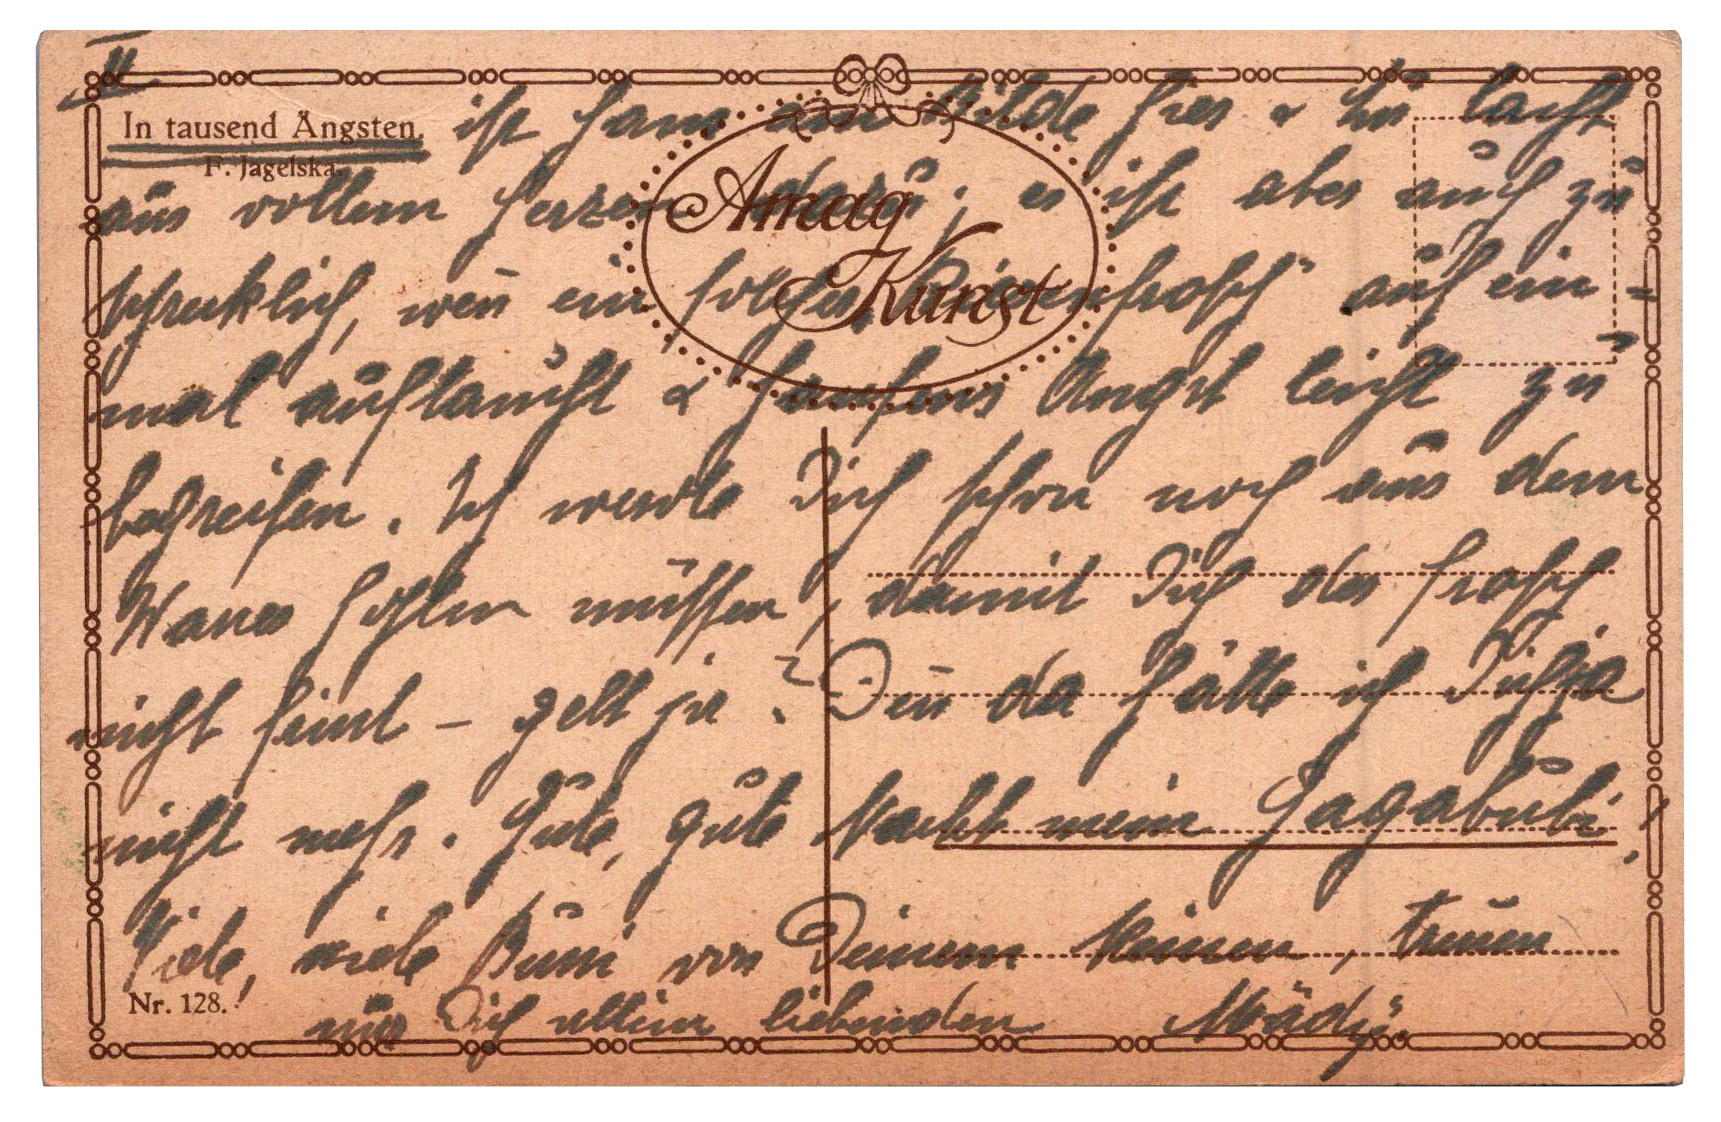 II
In tausend Ängsten.
F. Jagelska.
Amag
Kunst
ist Hans am Bilde hier & Du lacht
aus vollem Herzen dazu; es ist aber auch zu
schrecklich, wen̄ ein solcher „Riesenfrosch" auf ein-
mal auftaucht & Hansens Angst leicht zu
begreifen. Ich werde Dich schon noch aus dem
Wasser holen müssen, damit Dich der Frosch
nicht – gelt ja? Den̄ da hätte ich Dich ja
nicht mehr. Gute, gute Nacht mein Gagabubi!
Viele, viele Bussi von Deinem kleinen, treuen
nur Dich allein liebenden Mädy.
Nr. 128.